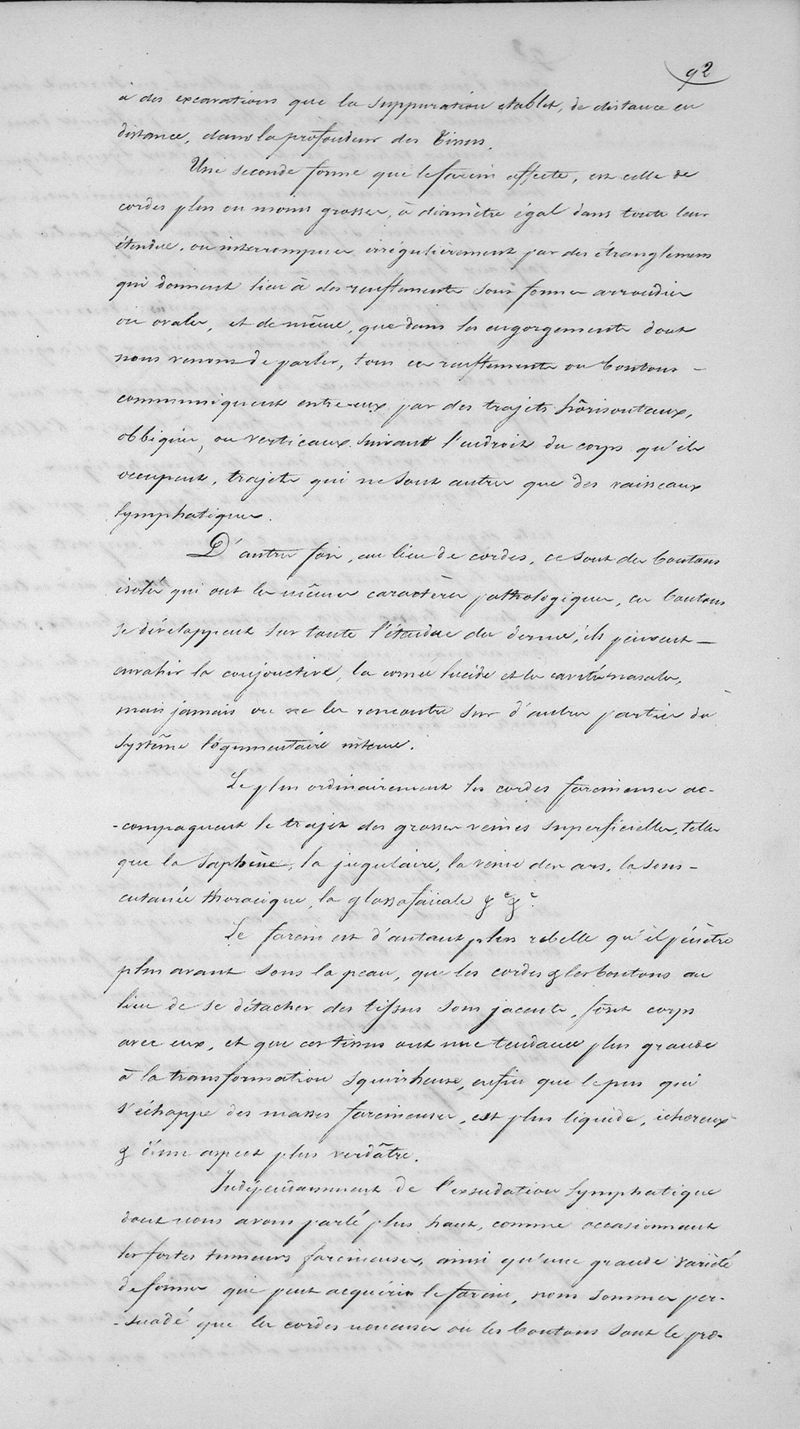 92
à des excavations que la suppuration etablit, de distance en
distance, dans la profondeur des tissus.
Une seconde forme que le farcin affecte, est celle de
cordes plus ou moins grosses, à diamètre égal dans toute leur
étendue, ou interrompues irrégulièrement par des étranglemens
qui donnent lieu à des renflements sous formes arrondies
ou ovales, et de même, que dans les engorgements dont
nous venons de parler, tous ces renflements ou boutons -
communiquent entre eux par des trajets hôrisontaux,
obliques, ou verticaux suivant l'endroit du corps qu'ils
occupent, trajets qui ne sont autres que des vaisseaux
lymphatiques.
D'autres fois, au lieu de cordes, ce sont des boutons
isolés qui ont les mêmes caractères pathologiques, ces boutons
se développent sur toute l'étendue du derme, ils peuvent -
envahir la conjonctive, la cornée lucide et les cavités nasales,
mais jamais on ne les rencontre sur d'autres parties du
système tégumentaire interne.
Le plus ordinairement les cordes farcineuses ac-
-compagnent le trajet des grosses veines superficielles, telles
que la saphène, la jugulaire, la veine des ars, la sous-
cutanée thoracique, la glossofaciale &c &c
Le farcin est d'autant plus rebelle qu'il pénètre
plus avant sous la peau, que les cordes & les boutons au
lieu de se détacher des tissus sous jacents, font corps
avec eux, et que ces tissus ont une tendance plus grande
à la transformation squirheuse, enfin que le pus qui
s'échappe des masses farcineuses, est plus liquide, ichoreux
& d'une aspect plus verdâtre.
Indépendamment de l'exsudation lymphatique
dont nous avons parlé plus haut, comme occasionnant
les fortes tumeurs farcineuses, ainsi qu'une grande variété
de formes que peut acquérir le farcin, nous sommes per-
-suadé que les cordes noueuses ou les boutons sont le pro-